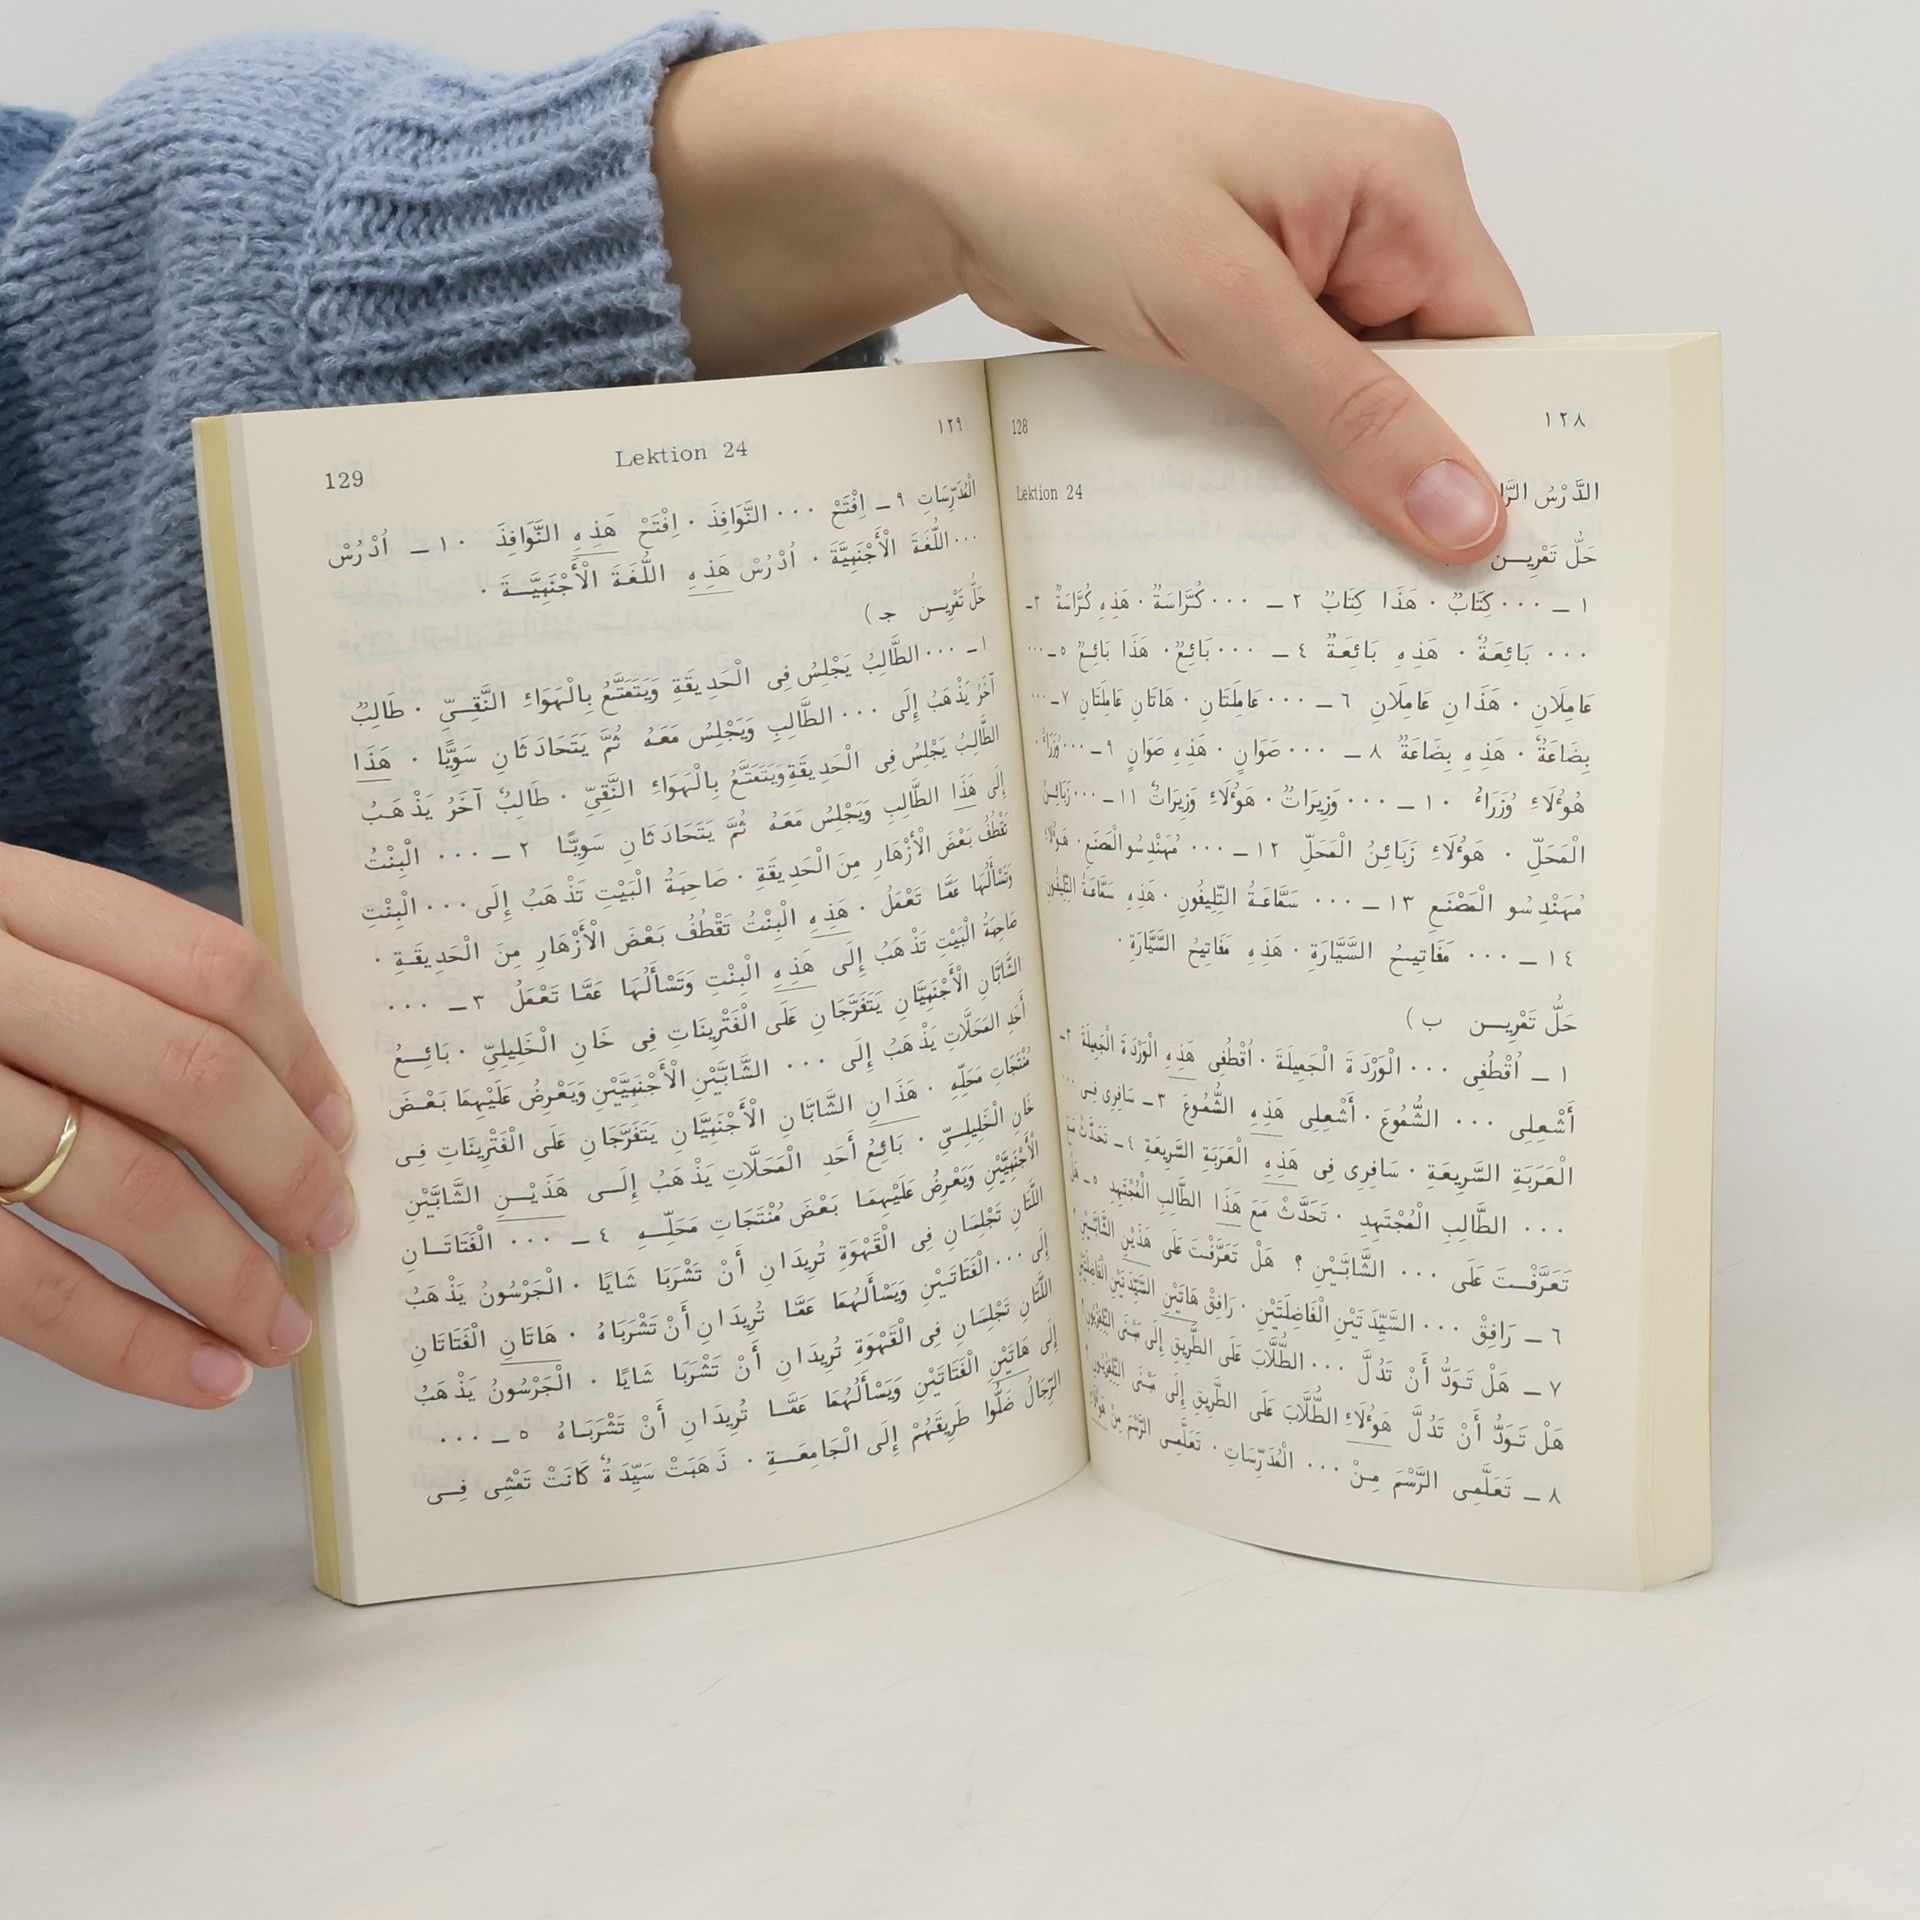 128 ١٢٨
Lektion 24 الدَّرْسُ
حَلُّ تَمْرِيـــن
١ ــ ٠٠٠ كِتَابٌ ٠ هَذَا كِتَابٌ ٢ ــ ٠٠٠ كُرَّاسَةٌ ٠ هَذِهِ كُرَّاسَةٌ ٣ــ
٠٠٠ بَائِعَةٌ ٠ هَذِهِ بَائِعَةٌ ٤ ــ ٠٠٠ بَائِعٌ ٠ هَذَا بَائِعٌ ٥ ــ ٠٠٠
عَامِلَانِ ٠ هَذَانِ عَامِلَانِ ٦ ــ ٠٠٠ عَامِلَتَانِ ٠ هَاتَانِ عَامِلَتَانِ ٧ــ ٠٠٠
بِضَاعَةٌ ٠ هَذِهِ بِضَاعَةٌ ٨ ــ ٠٠٠ صَوَانٍ ٠ هَذِهِ صَوَانٍ ٩ ــ ٠٠٠ وُزَرَاءُ ٠
هَؤُلَاءِ وُزَرَاءُ ١٠ ــ ٠٠٠ وَزِيرَاتٌ ٠ هَؤُلَاءِ وَزِيرَاتٌ ١١ ــ ٠٠٠ زَبَائِنُ
الْمَحَلِّ ٠ هَؤُلَاءِ زَبَائِنُ الْمَحَلِّ ١٢ ــ ٠٠٠ مُهَنْدِسُو الْمَصْنَعِ ٠ هَؤُلَاءِ
مُهَنْدِسُو الْمَصْنَعِ ١٣ ــ ٠٠٠ سَمَّاعَةُ التِّلِيفُونِ ٠ هَذِهِ سَمَّاعَةُ التِّلِيفُونِ
١٤ ــ ٠٠٠ مَفَاتِيـحُ السَّيَّارَةِ ٠ هَذِهِ مَفَاتِيحُ السَّيَّارَةِ ٠
حَلُّ تَمْرِيـــن ب )
١ ــ اُقْطُفِى ٠٠٠ الْوَرْدَةَ الْجَمِيلَةَ ٠ اُقْطُفِى هَذِهِ الْوَرْدَةَ الْجَمِيلَةَ ٢ــ
أَشْعِلِى ٠٠٠ الشُّمُوعَ ٠ أَشْعِلِى هَذِهِ الشُّمُوعَ ٣ ــ سَافِرِى فِى ٠٠٠
الْعَرَبَةِ السَّرِيعَةِ ٠ سَافِرِى فِى هَذِهِ الْعَرَبَةِ السَّرِيعَةِ ٤ ــ تَحَدَّثْ مَعَ
٠٠٠ الطَّالِبِ الْمُجْتَهِدِ ٠ تَحَدَّثْ مَعَ هَذَا الطَّالِبِ الْمُجْتَهِدِ ٥ ــ هَلْ
تَعَرَّفْـتَ عَلَى ٠٠٠ الشَّابَّـيْنِ ؟ هَلْ تَعَرَّفْتَ عَلَى هَذَيْنِ الشَّابَّيْنِ
٦ ــ رَافِقْ ٠٠٠ السَّيِّدَتَيْنِ الْفَاضِلَتَيْنِ ٠ رَافِقْ هَاتَيْنِ السَّيِّدَتَيْنِ الْفَاضِلَتَيْنِ
٧ ــ هَلْ تَـوَدُّ أَنْ تَدُلَّ ٠٠٠ الطُّلَّابَ عَلَى الطَّرِيقِ إِلَى مَبْنَى التِّلِفِزْيُونِ
هَلْ تَـوَدُّ أَنْ تَدُلَّ هَؤُلَاءِ الطُّلَّابَ عَلَى الطَّرِيقِ إِلَى مَبْنَى التِّلِفِزْيُونِ
٨ ــ تَعَلَّمِى الرَّسْمَ مِـنْ ٠٠٠ الْمُدَرِّسَاتِ ٠ تَعَلَّمِى الرَّسْمَ مِنْ هَؤُلَاءِ
129 Lektion 24 ١٢٩
الْمُدَرِّسَاتِ ٩ ــ اِفْتَحْ ٠٠٠ النَّوَافِذَ ٠ اِفْتَحْ هَذِهِ النَّوَافِذَ ١٠ ــ اُدْرُسْ
٠٠٠ اللُّغَةَ الْأَجْنَبِيَّةَ ٠ اُدْرُسْ هَذِهِ اللُّغَةَ الْأَجْنَبِيَّـــةَ ٠
حَلُّ تَمْرِيـــن جـ )
١ ــ ٠٠٠ الطَّالِبُ يَجْلِسُ فِى الْحَدِيقَةِ وَيَتَمَتَّعُ بِالْهَوَاءِ النَّقِـىِّ ٠ طَالِبٌ
آخَرُ يَذْهَبُ إِلَى ٠٠٠ الطَّالِبِ وَيَجْلِسُ مَعَهُ ثُمَّ يَتَحَادَثَانِ سَوِيًّا ٠ هَذَا
الطَّالِبُ يَجْلِسُ فِى الْحَدِيقَةِ وَيَتَمَتَّعُ بِالْهَوَاءِ النَّقِىِّ ٠ طَالِبٌ آخَرُ يَذْهَبُ
إِلَى هَذَا الطَّالِبِ وَيَجْلِسُ مَعَهُ ثُمَّ يَتَحَادَثَانِ سَوِيًّا ٢ ــ ٠٠٠ الْبِنْتُ
تَقْطُفُ بَعْضَ الْأَزْهَارِ مِنَ الْحَدِيقَةِ ٠ صَاحِبَةُ الْبَيْتِ تَذْهَبُ إِلَى ٠٠٠ الْبِنْتِ
وَتَسْأَلُهَا عَمَّا تَعْمَلُ ٠ هَذِهِ الْبِنْتُ تَقْطُفُ بَعْضَ الْأَزْهَارِ مِنَ الْحَدِيقَةِ ٠
صَاحِبَةُ الْبَيْتِ تَذْهَبُ إِلَى هَذِهِ الْبِنْتِ وَتَسْأَلُهَا عَمَّا تَعْمَلُ ٣ ــ ٠٠٠
الشَّابَّانِ الْأَجْنَبِيَّانِ يَتَفَرَّجَانِ عَلَى الْفَتْرِينَاتِ فِى خَانِ الْخَلِيلِىِّ ٠ بَائِـــعُ
أَحَدِ الْمَحَلَّاتِ يَذْهَبُ إِلَى ٠٠٠ الشَّابَّيْنِ الْأَجْنَبِيَّيْنِ وَيَعْرِضُ عَلَيْهِمَا بَعْـضَ
مُنْتَجَاتِ مَحَلِّهِ ٠ هَذَانِ الشَّابَّانِ الْأَجْنَبِيَّانِ يَتَفَرَّجَانِ عَلَى الْفَتْرِينَاتِ فِـى
خَانِ الْخَلِيلِـىِّ ٠ بَائِعُ أَحَدِ الْمَحَلَّاتِ يَذْهَبُ إِلَــى هَذَيْــنِ الشَّابَّيْنِ
الْأَجْنَبِيَّيْنِ وَيَعْرِضُ عَلَيْهِمَا بَعْضَ مُنْتَجَاتِ مَحَلِّـــهِ ٤ ــ ٠٠٠ الْفَتَاتَــانِ
اللَّتَانِ تَجْلِسَانِ فِى الْقَهْوَةِ تُرِيدَانِ أَنْ تَشْرَبَا شَايًا ٠ الْجَرْسُونُ يَذْهَبُ
إِلَى ٠٠٠ الْفَتَاتَـيْنِ وَيَسْأَلُهُمَا عَمَّا تُرِيدَانِ أَنْ تَشْرَبَاهُ ٠ هَاتَانِ الْفَتَاتَانِ
اللَّتَانِ تَجْلِسَانِ فِى الْقَهْوَةِ تُرِيدَانِ أَنْ تَشْرَبَا شَايًا ٠ الْجَرْسُونُ يَذْهَبُ
إِلَى هَاتَيْنِ الْفَتَاتَيْنِ وَيَسْأَلُهُمَا عَمَّــا تُرِيدَانِ أَنْ تَشْرَبَـاهُ ٥ ــ ٠٠٠
الرِّجَالُ ضَلُّوا طَرِيقَهُمْ إِلَى الْجَامِعَـــةِ ٠ ذَهَبَتْ سَيِّدَةٌ كَانَتْ تَمْشِى فِــى